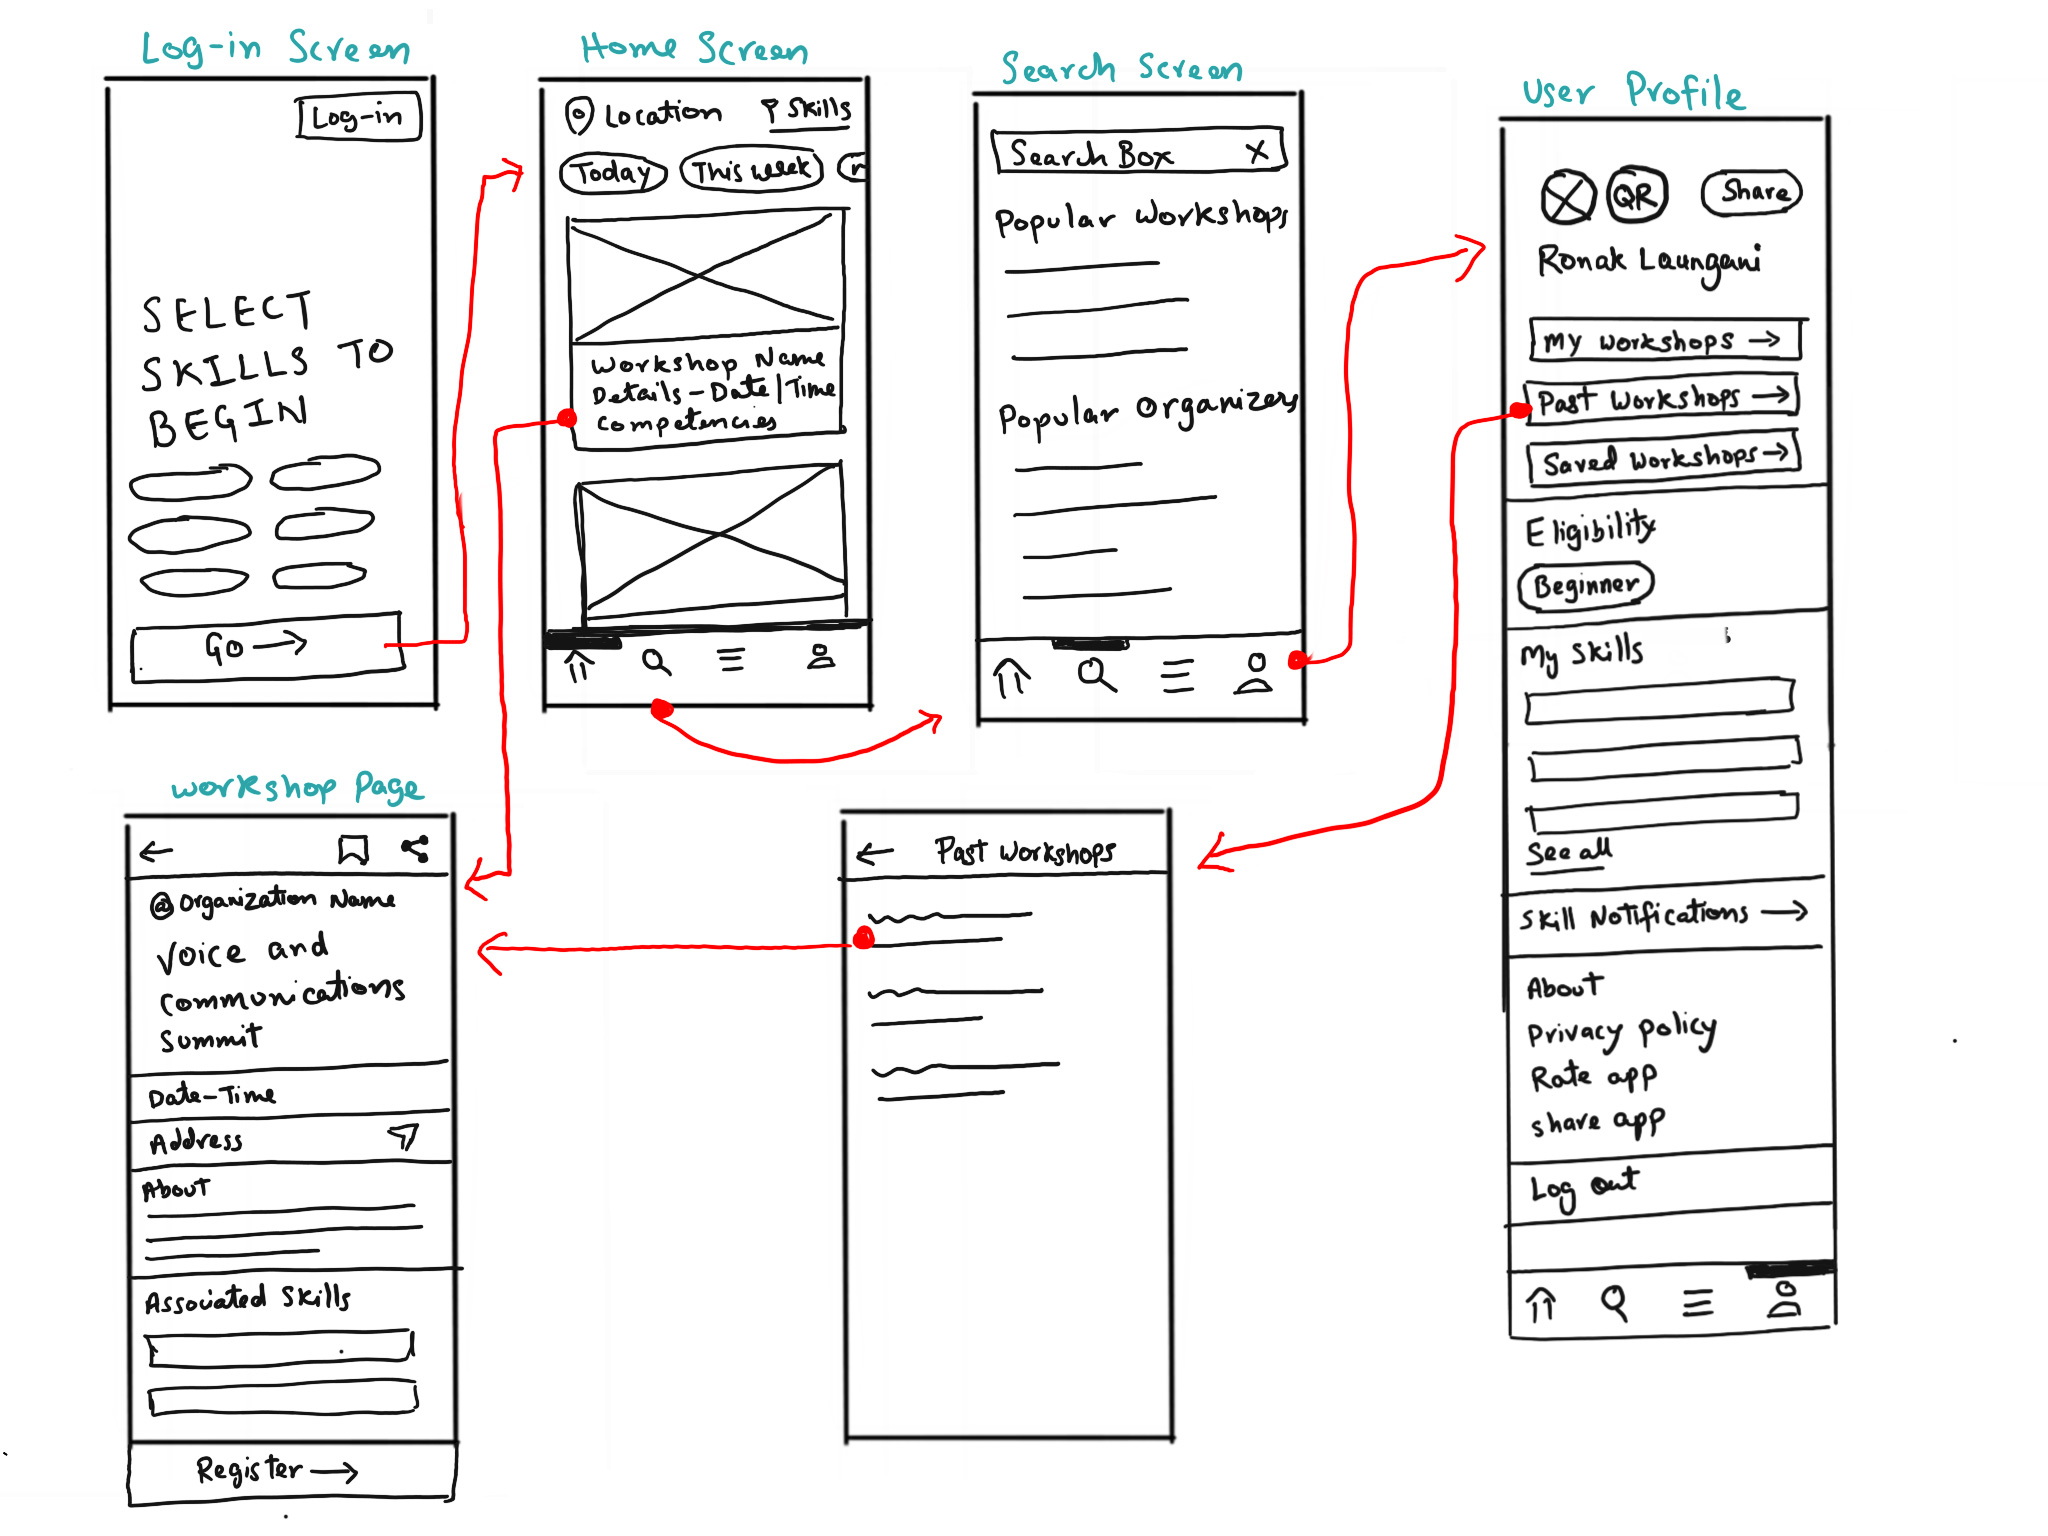 Log-in Screen
Log-in
SELECT
SKILLS TO
BEGIN
Go →
Home Screen
Location Skills
Today This week
Workshop Name
Details - Date | Time
Competencies
Search Screen
Search Box X
Popular Workshops
Popular Organizers
User Profile
QR Share
Ronak Laungani
My Workshops →
Past Workshops →
Saved Workshops →
Eligibility
Beginner
My Skills
See all
Skill Notifications →
About
Privacy policy
Rate app
share app
Log out
Workshop Page
@ Organization Name
Voice and
Communications
Summit
Date-Time
Address
About
Associated Skills
Register →
← Past Workshops